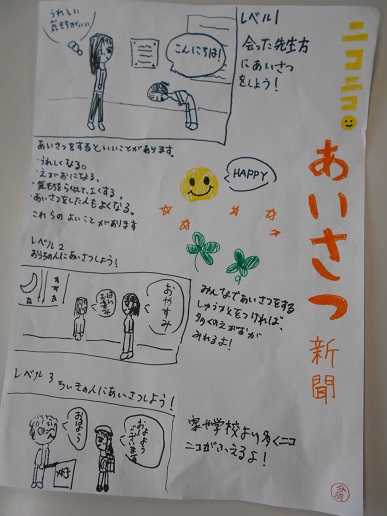 ニコニコ
あいさつ
新聞
レベル1
会った先生方
にあいさつ
をしよう!
うれしい
気もちがいい
こんにちは!
あいさつをするといいことがあります。
・うれしくなる。
・えがおになる。
・あいさつをした人もよくなる。
これらのよいことがあります
HAPPY
レベル2
おうちの人にあいさつしよう!
おやすみ
みんなであいさつをする
しゅう火をつければ、
多くのえがおが
みれるよ!
レベル3
ちいきの人にあいさつしよう!
おはよう
おはよう
ございます
家や学校より多くニコ
ニコがふえるよ!